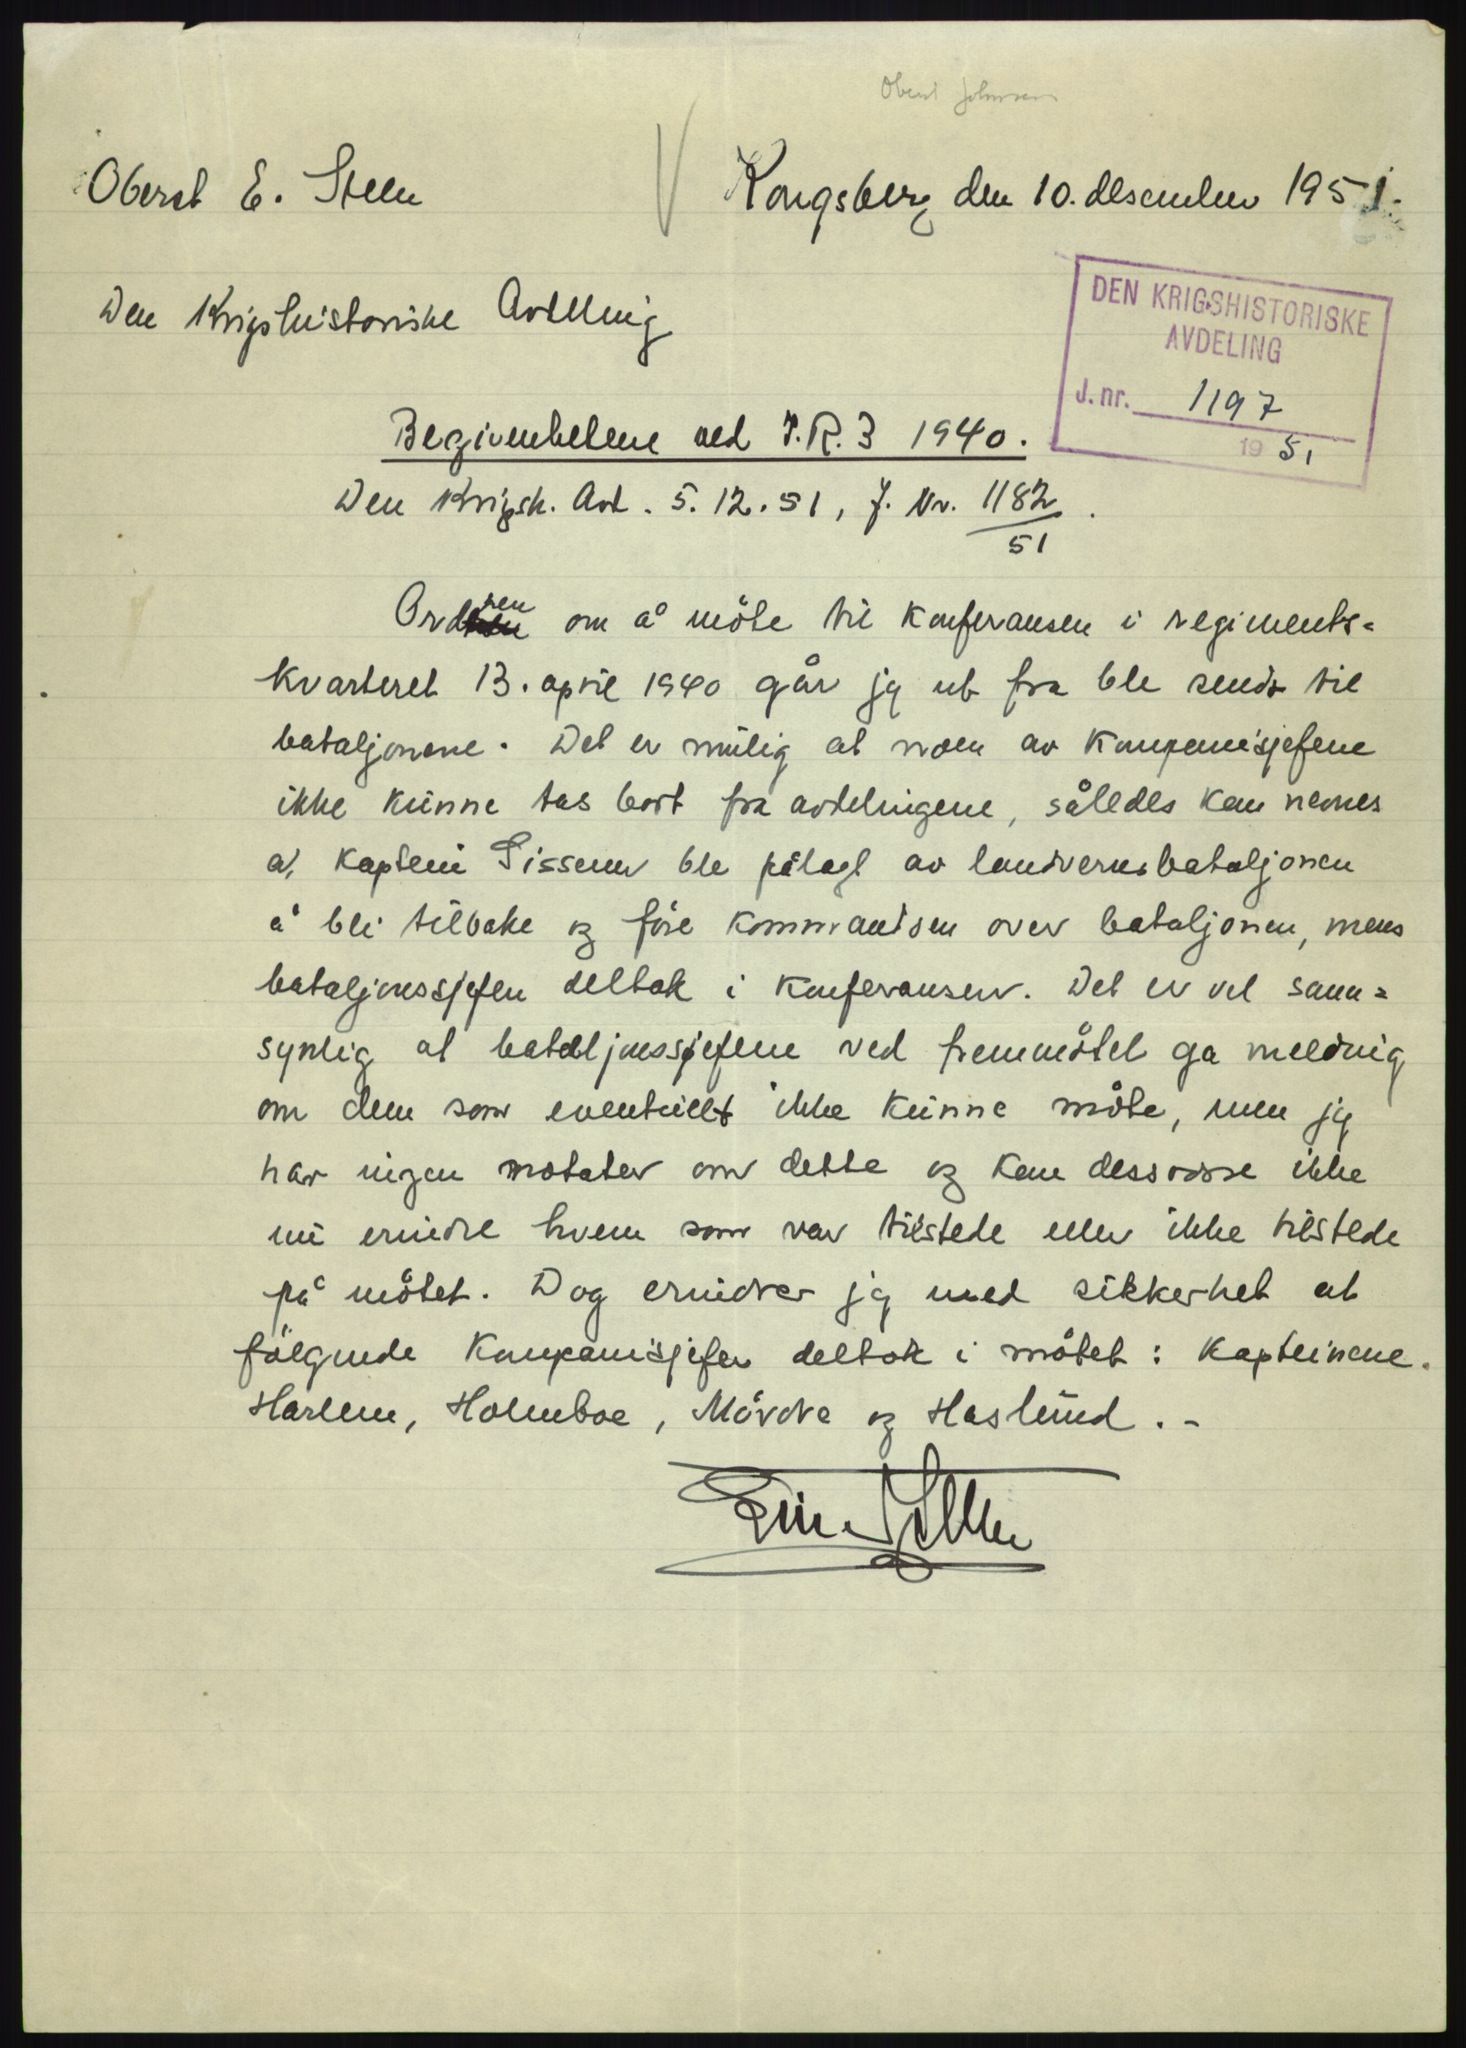 Oberst Johnsen
Oberst E. Steen
Kongsberg den 10. desember 1951.
Den Krigshistoriske Avdeling
DEN KRIGSHISTORISKE
AVDELING
J. nr. 1197
19 51
Begivenhetene ved I.R. 3 1940.
Den Krigsh. Avd. 5.12.51, J. Nr. 1182/51.
Ordren om å möte til konferansen i regiments-
kvarteret 13. april 1940 går jeg ut fra ble sendt til
bataljonene. Det er mulig at noen av kompanisjefene
ikke kunne tas bort fra avdelingene, således kan nevnes
at kaptein Tissener ble pålagt av landvernsbataljonen
å bli tilbake og före kommandoen over bataljonen, mens
bataljonssjefen deltok i konferansen. Det er vel sann=
synlig at bataljonssjefene ved fremmötet ga melding
om dem som eventuellt ikke kunne möte, men jeg
har ingen notater om dette og kan dessverre ikke
nu erindre hvem som var tilstede eller ikke tilstede
på mötet. Dog erindrer jeg med sikkerhet at
fölgende kompanisjefer deltok i mötet: kapteinene
Harlem, Holmboe, Mördre og Haslund. -
Einar Steen